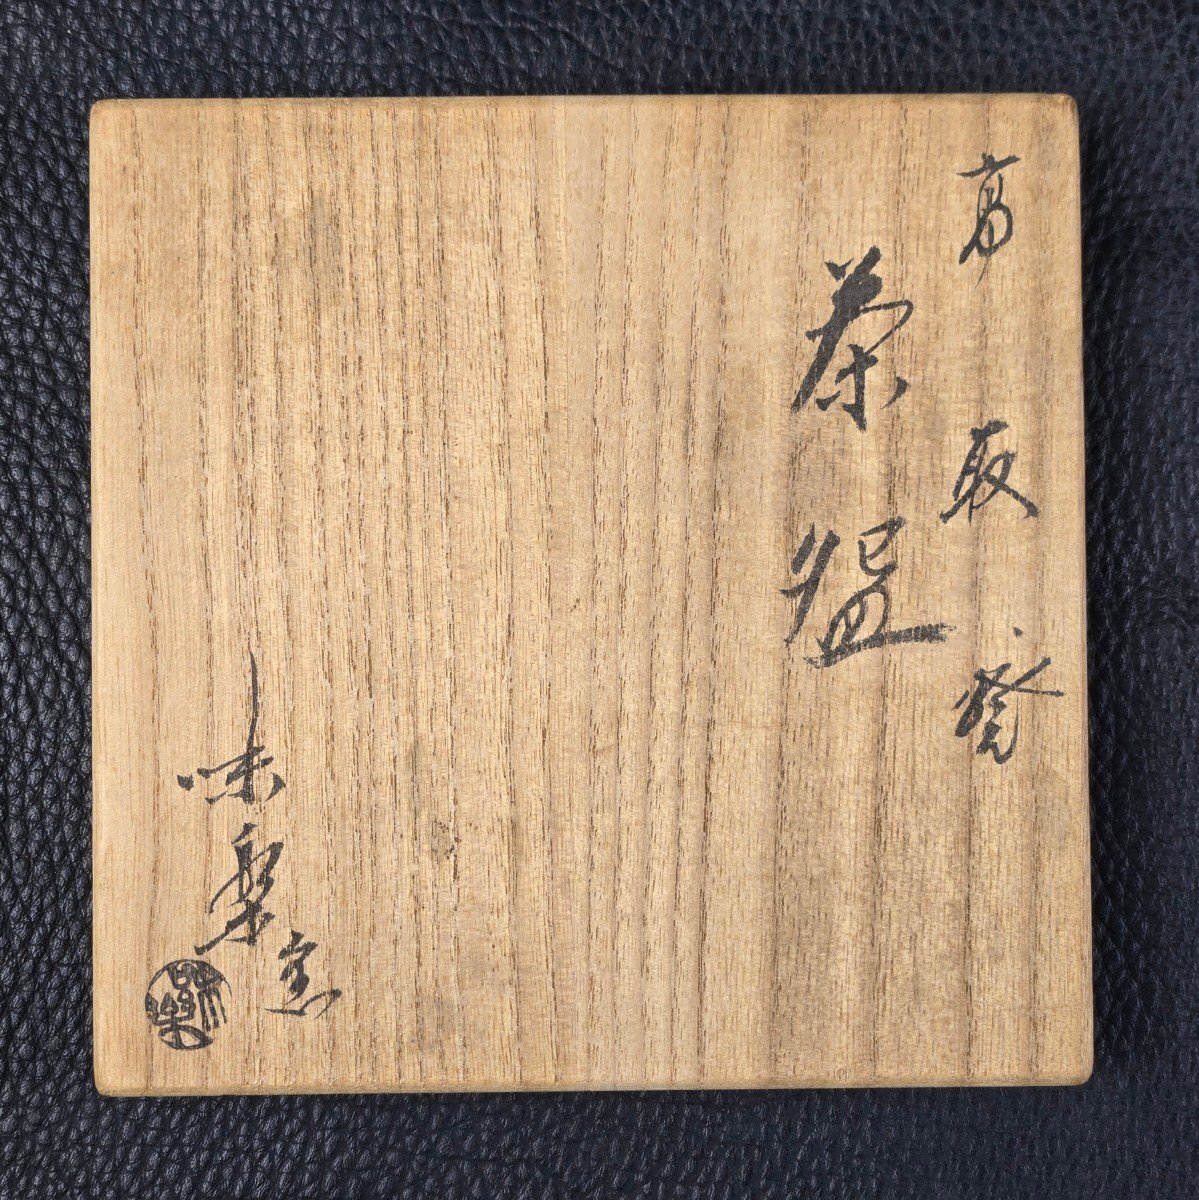 高取焼
茶盌
味楽窯
味楽